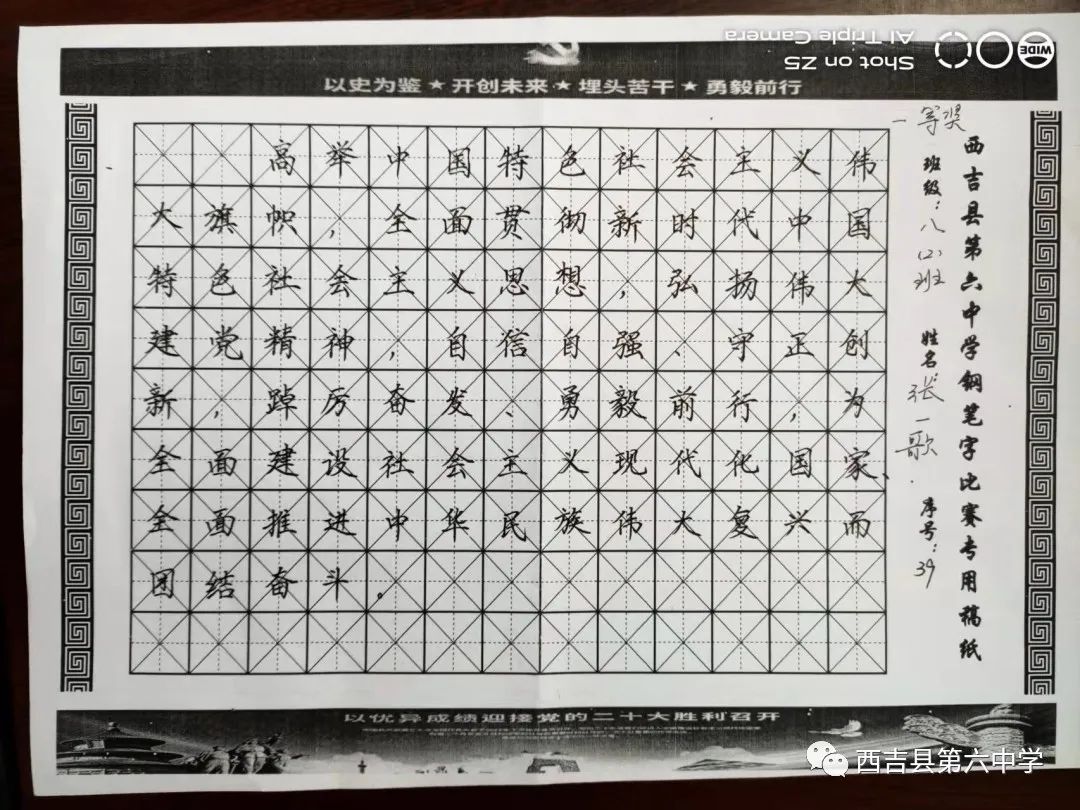 Shot on Z5
AI Triple Camera
WIDE
以史为鉴★开创未来★埋头苦干★勇毅前行
高举中国特色社会主义伟
大旗帜，全面贯彻新时代中国
特色社会主义思想，弘扬伟大
建党精神，自信自强、守正创
新，踔厉奋发、勇毅前行，为
全面建设社会主义现代化国家、
全面推进中华民族伟大复兴而
团结奋斗。
一等奖
西吉县第六中学钢笔字比赛专用稿纸
班级：八(2)班
姓名：张一歌
序号：39
以优异成绩迎接党的二十大胜利召开
西吉县第六中学